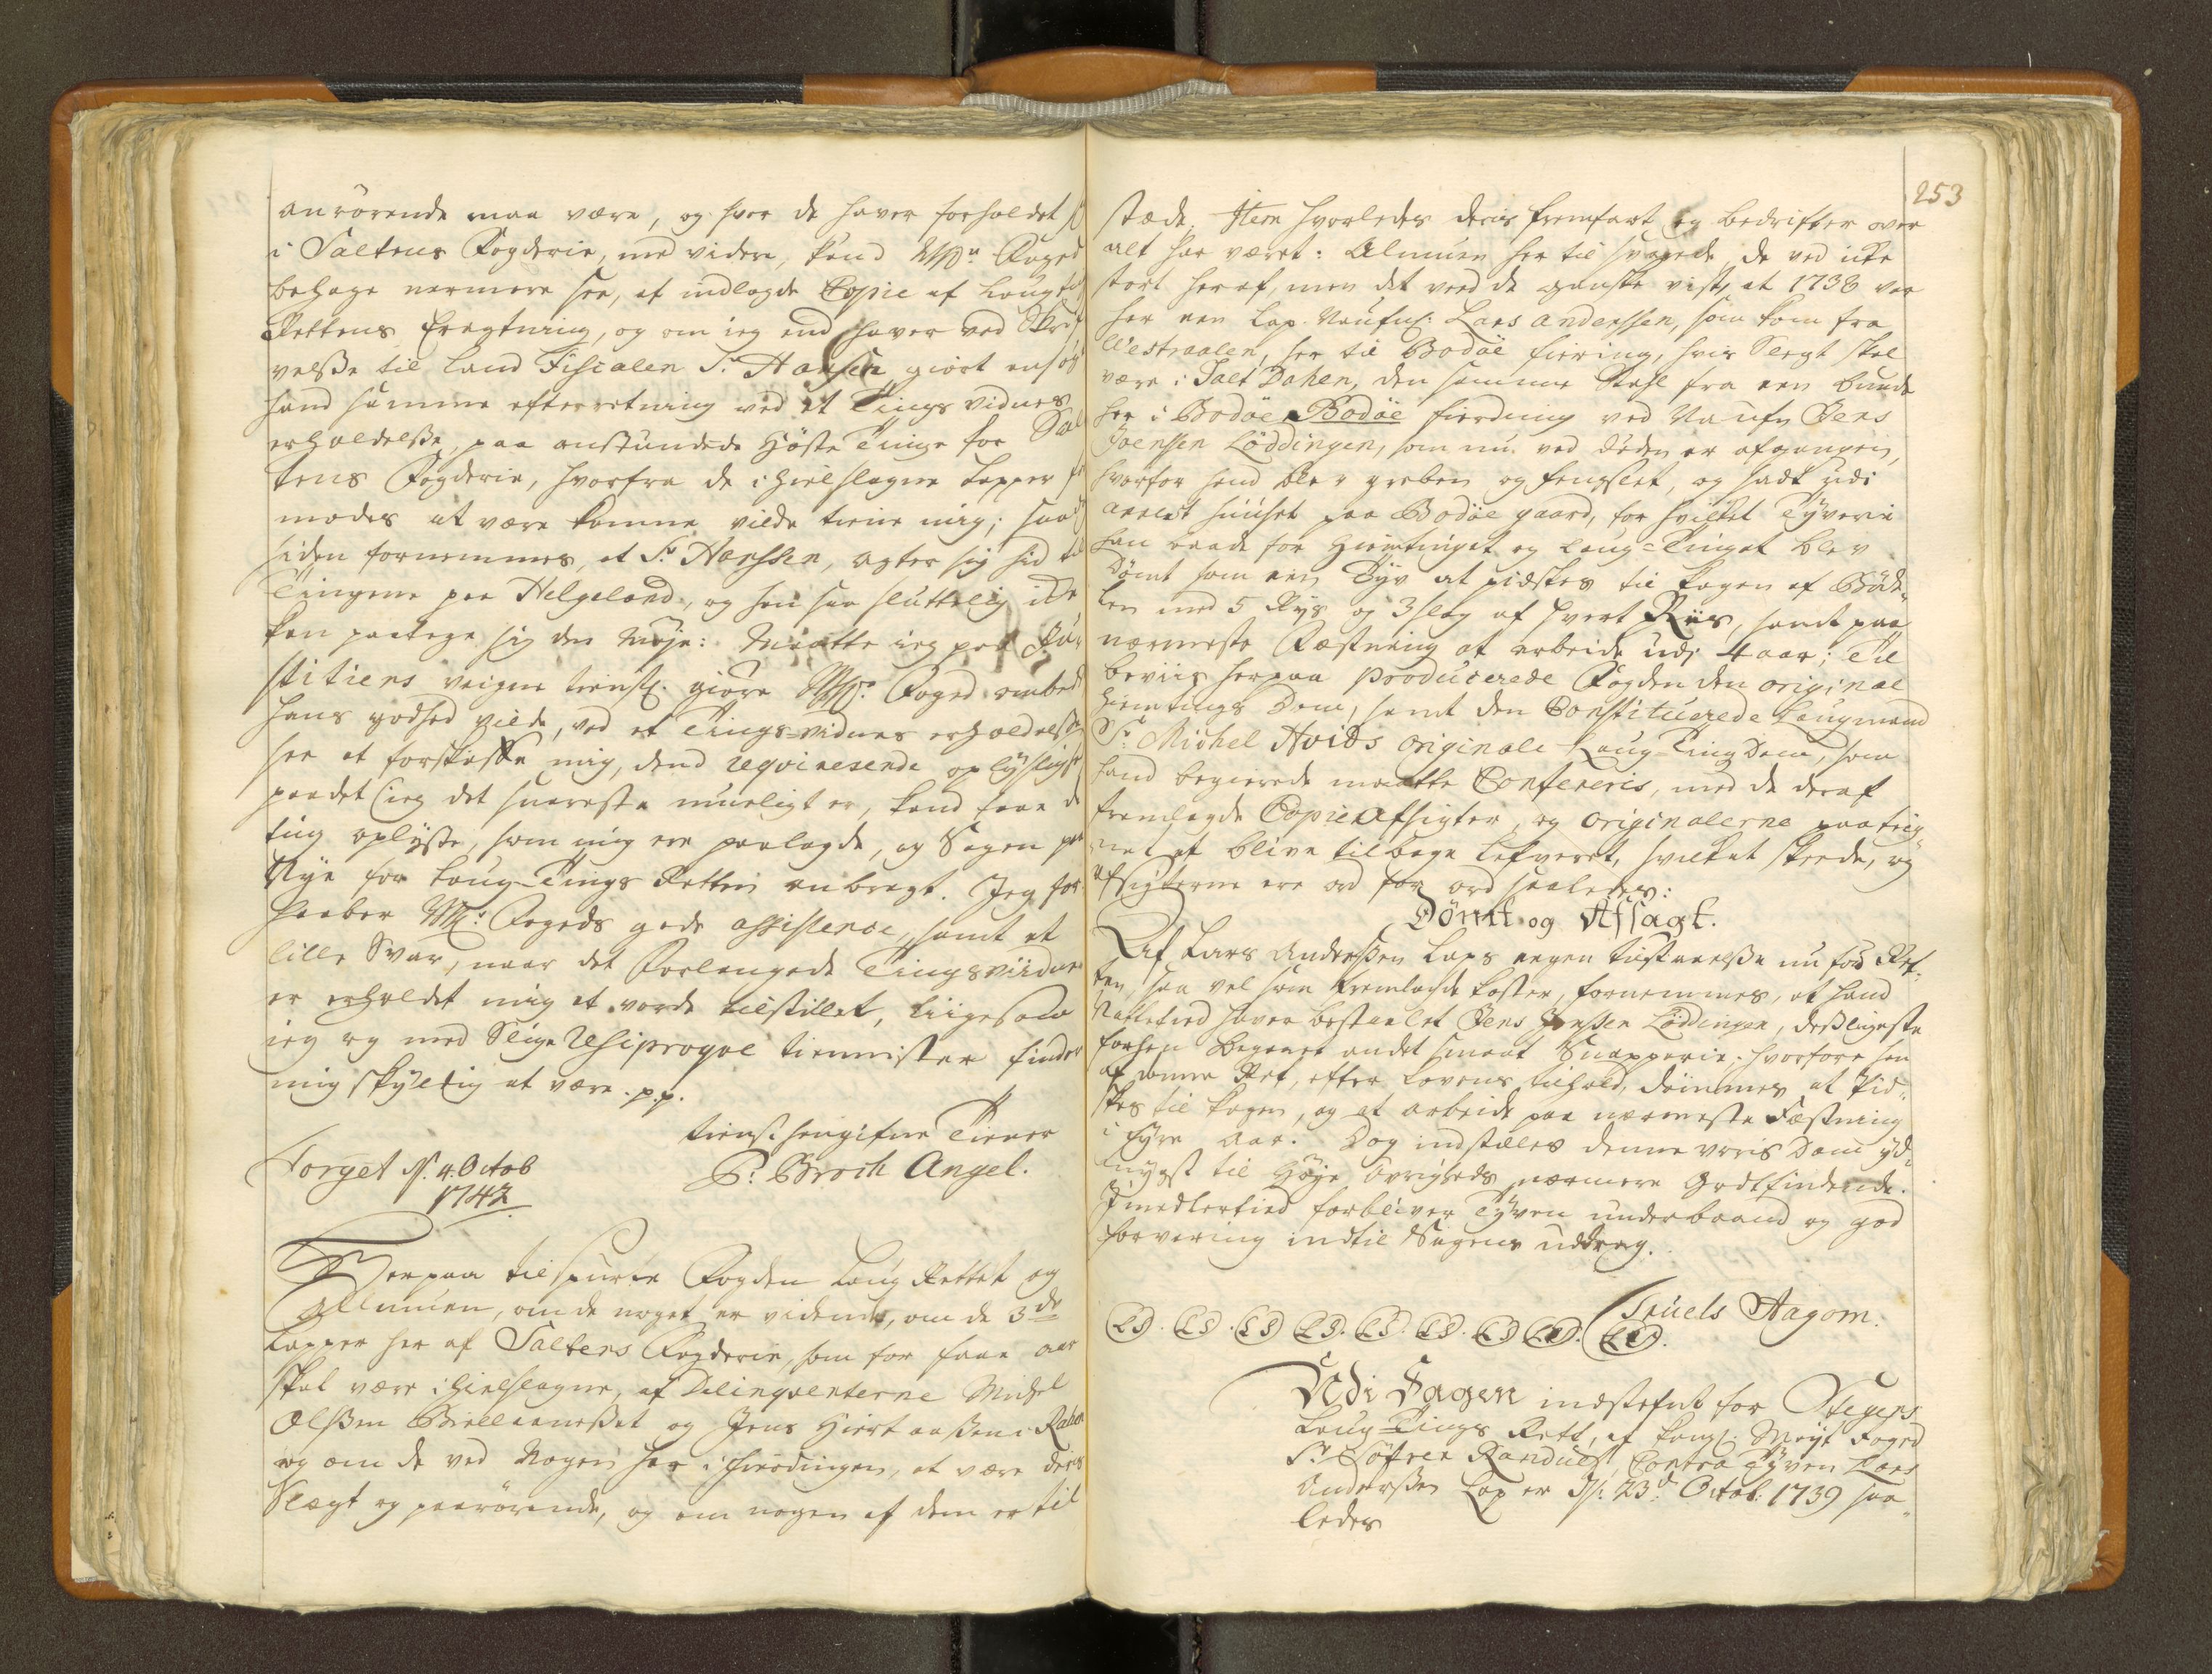 anrörende maa være, og hvor de haver forholdet
i Saltens Fogderie, med videre, kand Msr Foged
behage nermere see, af indlagde Copie af Laugtings
Rettens Eragtning, og om ieg end haver ved Skri
velße til Land Fiscalen Sr Hansen giort
hand samme efterretning ved et Tings vidnes
erholdelße, paa anstundende Höste Tinge for Sal
tens Fogderie, hvorfra de ihielslagne Lapper
modes at være komne vilde tiene mig; saa
siden fornemmes, at Sr Hanssen, agter sig hid til
Tingene paa Helgeland, og han saa sluttelig icke
kan paatage sig den Möje: Maatte ieg paa Ju
stitiens veigne tienstl: giöre Msr Foged ombed
hans godhed vilde, ved et Tings-vidnes erholdelße
see at forskaffe mig, dend reqvirerende oplysning
paa det ieg det snareste mueligt er, kand faae de
ting oplyste, som mig ere paalagde, og Sagen paa
Nye for Laug-Tings Retten anbragt. Jeg for
haaber Msr Fogeds gode assistence, samt et
lille Svar, naar det Forlangede Tingsviidne
er erholdet mig at vorde tilstillet, liigesom
ieg og med Slige Resiproqve tiennister finder
mig skyldig at være. p.p.
tienst. hengifne Tiener
Torget d. 4. Octob P: Broch Angel.
1742
Herpaa tilspurte Fogden Laug Rettet og
Allmuen, om de noget er vidende, om de 3de
Lapper her af Saltens Fogderie, som for faae aar
skal være ihielslagne, af Delinqventerne Michel
Olßen Bielleaneßet og Jens Hiort aaßen i Rahen
og om de ved Nogen her i fierdingen, at være deris
Slægt og paarörende, og om nogen af dem er til
253
stæde. Item hvorledes deris fremfart og bedrifter over
alt har været: Almuen her til svarede, de ved icke
stort heraf, men det veed de ganske vist, at 1738 var
her een Lap Naufnl: Lars Anderssen, som kom fra
Westraalen, her til Bodöe fiering, hvis Slegt skal
være i Salt Dahlen, den samme Stahl fra een bunde
her i Bodöe Bodöe fierdning ved Naufn Jens
Joenssen Löddingen, som nu ved döden er afgangen,
hvorfor hand blev greben og fengslet, og sadt udi
arrest huuset paa Bodöe gaard, for hvilket Tyverie
han baade for Hiemtinget og Laug-Tinget blev
Dömt som een Tyv at pidskes til kagen af Böd-
len med 5 Rys og 3 slag af hvert Riis, samt paa
nærmeste Fæstning at arbeide udi 4 aar; Til
beviis herpaa producerede Fogden den original
Hiemtings Dom, samt den Constituerede Laugmand
Sr Michel Hvids originale Laug-Ting Dom, som
hand begierede maatte Confereris, med de deraf
fremlagde Copie Afsigter, og originalerne paa teig
net at blive tilbage lefveret, hvilket skeede, og
afsigterne ere ord for ord saaledes:
Dömt og Afsagt.
Af Lars Anderßen Laps eegen tilstaaelße nu for Ret-
ten, saa vel som fremlagde koster, fornemmes, at hand
Nattetied haver bestaalet Jens Joenßen Löddingen, deßligeste
forhen begaaet andet smaat Snapperie. hvorfore han
af denne Ret, efter Lovens tilhold, dömmes at Pid-
skes til kagen, og at arbeide paa nærmeste Fæstning
i fyre aar. Dog indstilles denne voris Dom yd-
mygst til Höje Övrigheds nærmere Godtfindende.
Imedlertied forbliver Tyven underbaand og god
forvaring indtil Sagens uddrag.
Truels Aagom.
LS. LS. LS LS. LS. LS. LS LS. LS.
Udi Sagen indstefnt for Stegens
Laug-Tings Rett, af kongl: Mayt Foged
Sr Söfren Randulf, Contra Tyven Lars
Anderßen Lap er d: 23d Octob: 1739 saa-
ledes